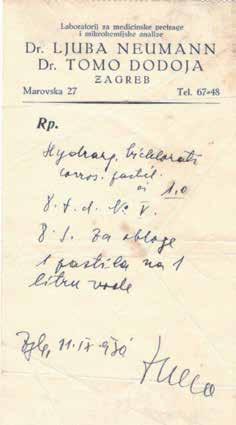 Laboratorij za medicinske pretrage
i mikrokemijske analize
Dr. LJUBA NEUMANN
Dr. TOMO DODOJA
ZAGREB
Marovska 27 Tel. 67-48
Rp.
Hydrarg. bichlorati
corros. pastil.
a͞a 1.0
D. t. d. No V.
D. S. Za obloge
1 pastila na 1
litru vode
Zgb, 11. IX 930